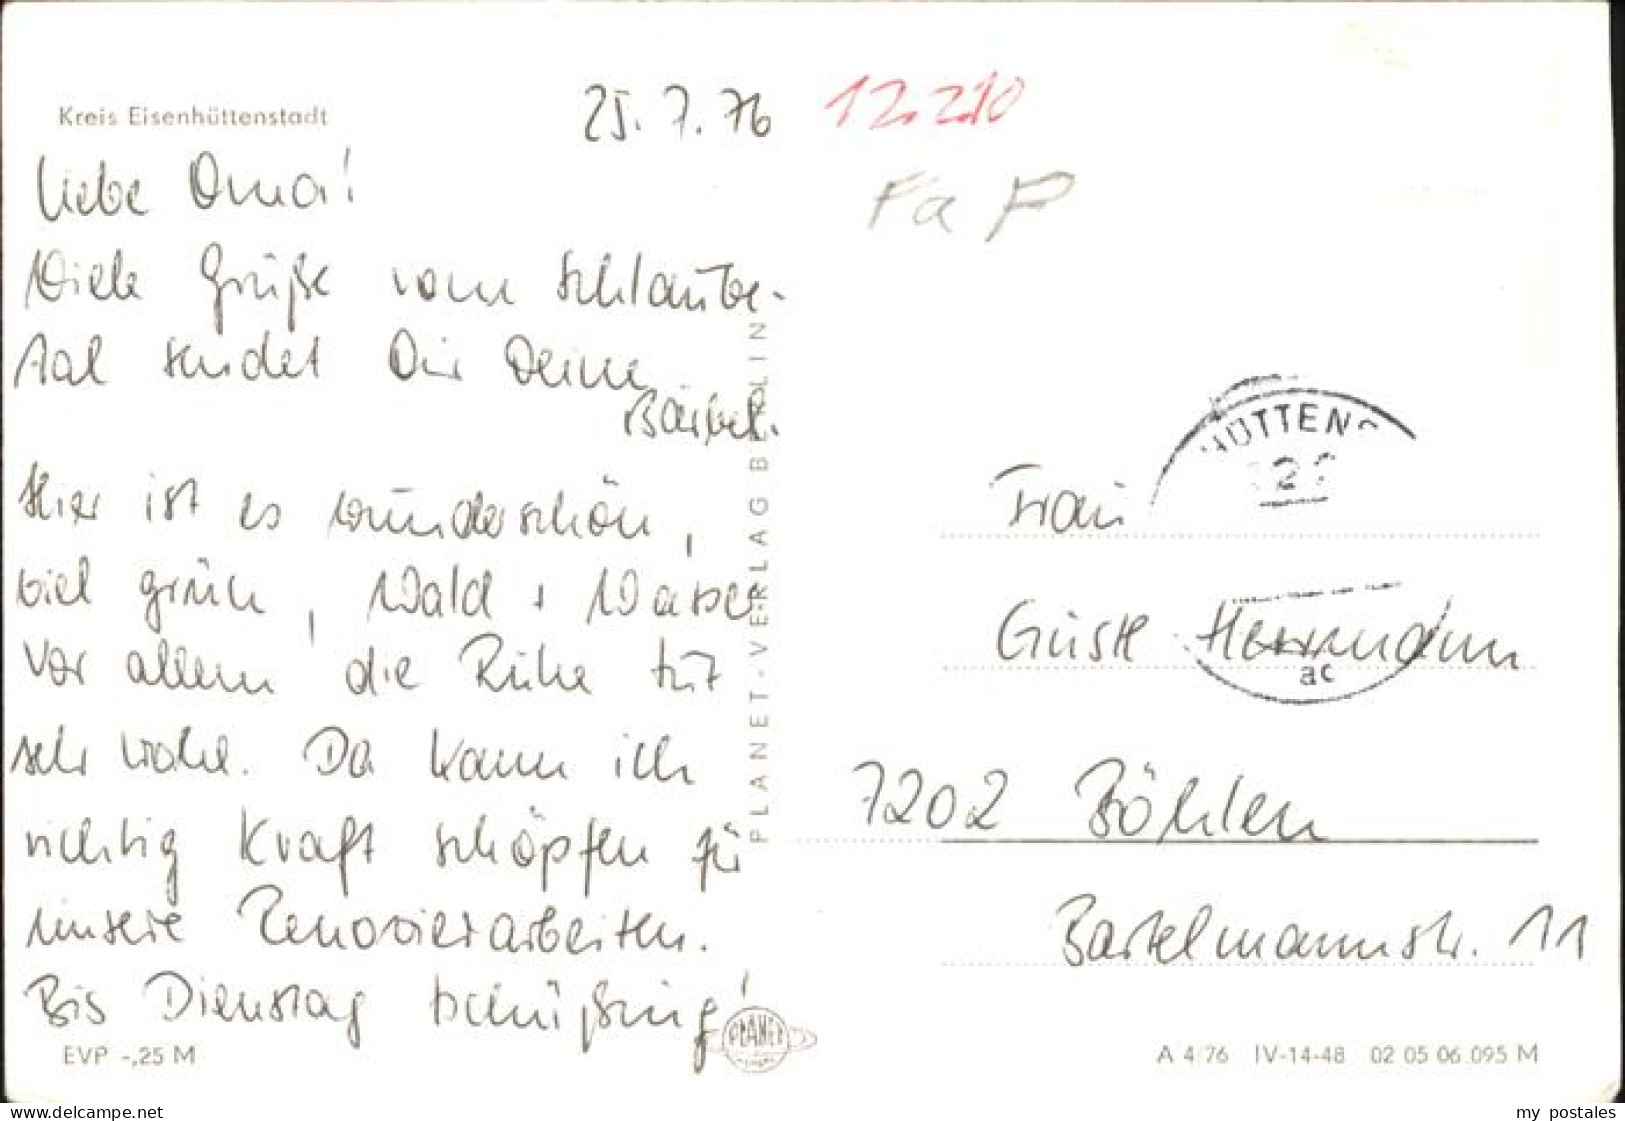 Kreis Eisenhüttenstadt
25.7.76
12.210
Fa P
Liebe Oma!
Viele Grüße vom Schlaube-
tal sendet Dir Deine
Bärbel.
Hier ist es wunderschön,
viel grün, Wald + Wasser
Vor allem die Ruhe tut
sehr wohl. Da kann ich
richtig Kraft schöpfen für
unsere Renovierarbeiten.
Bis Dienstag
EVP -,25 M
PLANET-VERLAG BERLIN
PLANET
HÜTTENS
ac
Frau
Guste Herrmann
7202 Böhlen
Bartelmannstr. 11
A 4/76 IV-14-48 02 05 06 095 M
my-postales.com
my postales